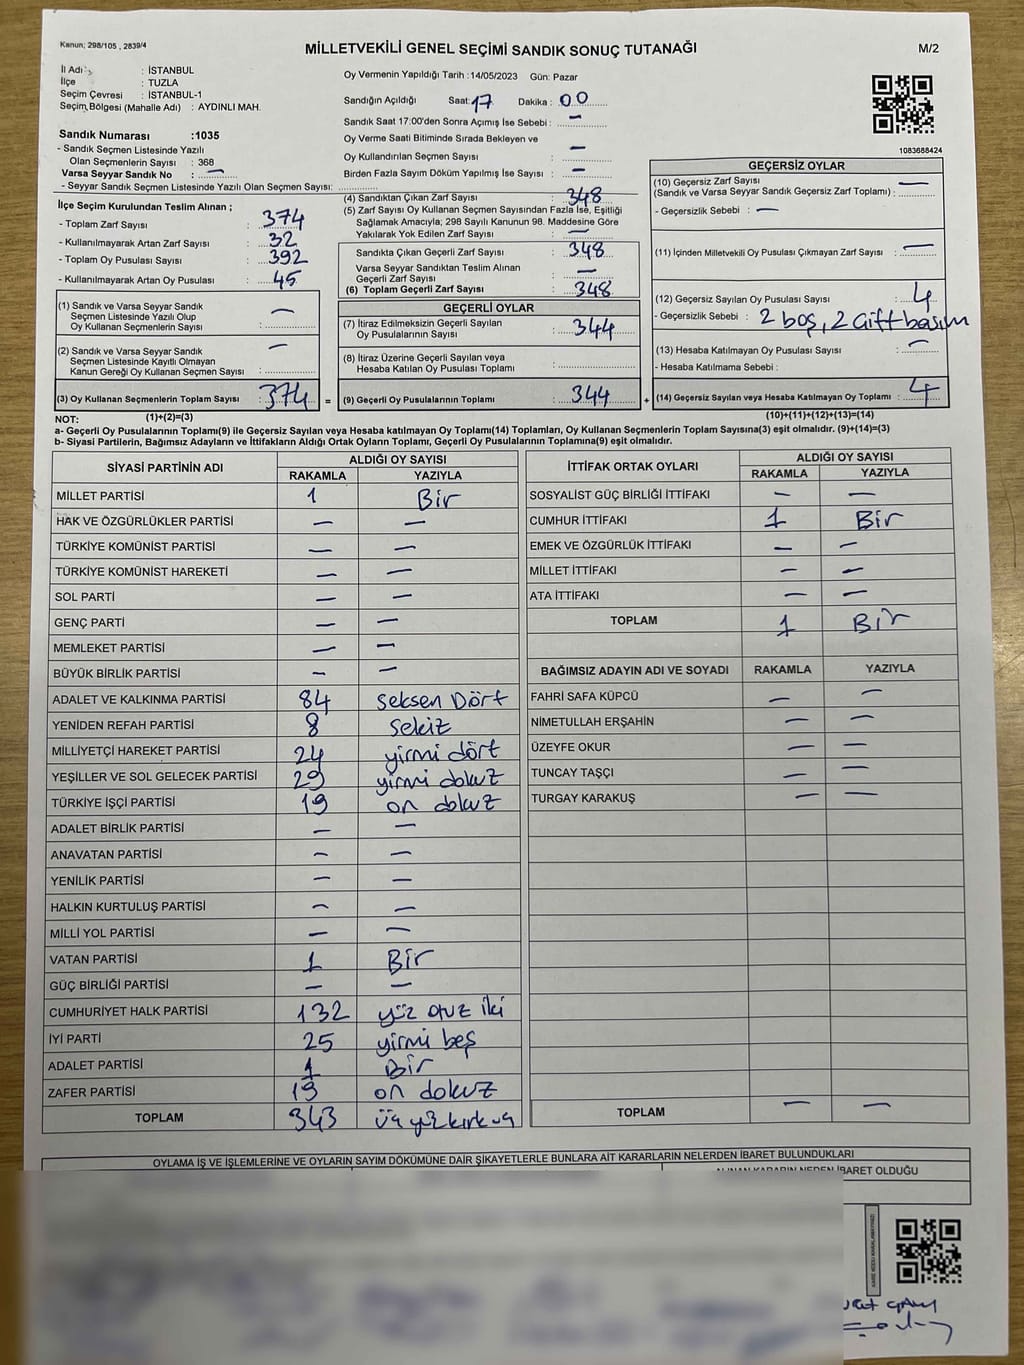 Kanun; 298/105 , 2839/4
MİLLETVEKİLİ GENEL SEÇİMİ SANDIK SONUÇ TUTANAĞI
M/2
İl Adı : İSTANBUL
İlçe : TUZLA
Seçim Çevresi : İSTANBUL-1
Seçim Bölgesi (Mahalle Adı) : AYDINLI MAH.
Oy Vermenin Yapıldığı Tarih :14/05/2023 Gün: Pazar
Sandığın Açıldığı Saat: 17 Dakika : 00
Sandık Saat 17:00'den Sonra Açımış İse Sebebi : —
Oy Verme Saati Bitiminde Sırada Bekleyen ve
Oy Kullandırılan Seçmen Sayısı : —
Birden Fazla Sayım Döküm Yapılmış İse Sayısı : —
1083688424
Sandık Numarası :1035
- Sandık Seçmen Listesinde Yazılı
Olan Seçmenlerin Sayısı : 368
Varsa Seyyar Sandık No : —
- Seyyar Sandık Seçmen Listesinde Yazılı Olan Seçmen Sayısı:
İlçe Seçim Kurulundan Teslim Alınan ;
- Toplam Zarf Sayısı : 374
- Kullanılmayarak Artan Zarf Sayısı : 32
- Toplam Oy Pusulası Sayısı : 392
- Kullanılmayarak Artan Oy Pusulası : 45
(1) Sandık ve Varsa Seyyar Sandık
Seçmen Listesinde Yazılı Olup
Oy Kullanan Seçmenlerin Sayısı : —
(2) Sandık ve Varsa Seyyar Sandık
Seçmen Listesinde Kayıtlı Olmayan
Kanun Gereği Oy Kullanan Seçmen Sayısı : —
(3) Oy Kullanan Seçmenlerin Toplam Sayısı : 374 =
(1)+(2)=(3)
(4) Sandıktan Çıkan Zarf Sayısı : 348
(5) Zarf Sayısı Oy Kullanan Seçmen Sayısından Fazla İse, Eşitliği
Sağlamak Amacıyla; 298 Sayılı Kanunun 98. Maddesine Göre
Yakılarak Yok Edilen Zarf Sayısı : —
Sandıkta Çıkan Geçerli Zarf Sayısı : 348
Varsa Seyyar Sandıktan Teslim Alınan
Geçerli Zarf Sayısı : —
(6) Toplam Geçerli Zarf Sayısı : 348
GEÇERLİ OYLAR
(7) İtiraz Edilmeksizin Geçerli Sayılan
Oy Pusulalarının Sayısı : 344
(8) İtiraz Üzerine Geçerli Sayılan veya
Hesaba Katılan Oy Pusulası Toplamı :
(9) Geçerli Oy Pusulalarının Toplamı : 344 +
GEÇERSİZ OYLAR
(10) Geçersiz Zarf Sayısı
(Sandık ve Varsa Seyyar Sandık Geçersiz Zarf Toplamı) : —
- Geçersizlik Sebebi : —
(11) İçinden Milletvekili Oy Pusulası Çıkmayan Zarf Sayısı : —
(12) Geçersiz Sayılan Oy Pusulası Sayısı : 4
- Geçersizlik Sebebi : 2 boş, 2 Çift basım
(13) Hesaba Katılmayan Oy Pusulası Sayısı : —
- Hesaba Katılmama Sebebi :
(14) Geçersiz Sayılan veya Hesaba Katılmayan Oy Toplamı : 4
(10)+(11)+(12)+(13)=(14)
NOT:
a- Geçerli Oy Pusulalarının Toplamı(9) ile Geçersiz Sayılan veya Hesaba katılmayan Oy Toplamı(14) Toplamları, Oy Kullanan Seçmenlerin Toplam Sayısına(3) eşit olmalıdır. (9)+(14)=(3)
b- Siyasi Partilerin, Bağımsız Adayların ve İttifakların Aldığı Ortak Oyların Toplamı, Geçerli Oy Pusulalarının Toplamına(9) eşit olmalıdır.
SİYASİ PARTİNİN ADI ALDIĞI OY SAYISI
RAKAMLA YAZIYLA
MİLLET PARTİSİ 1 Bir
HAK VE ÖZGÜRLÜKLER PARTİSİ — —
TÜRKİYE KOMÜNİST PARTİSİ — —
TÜRKİYE KOMÜNİST HAREKETİ — —
SOL PARTİ — —
GENÇ PARTİ — —
MEMLEKET PARTİSİ — —
BÜYÜK BİRLİK PARTİSİ — —
ADALET VE KALKINMA PARTİSİ 84 Seksen Dört
YENİDEN REFAH PARTİSİ 8 Sekiz
MİLLİYETÇİ HAREKET PARTİSİ 24 yirmi dört
YEŞİLLER VE SOL GELECEK PARTİSİ 29 yirmi dokuz
TÜRKİYE İŞÇİ PARTİSİ 19 on dokuz
ADALET BİRLİK PARTİSİ — —
ANAVATAN PARTİSİ — —
YENİLİK PARTİSİ — —
HALKIN KURTULUŞ PARTİSİ — —
MİLLİ YOL PARTİSİ — —
VATAN PARTİSİ 1 Bir
GÜÇ BİRLİĞİ PARTİSİ — —
CUMHURİYET HALK PARTİSİ 132 yüz otuz iki
İYİ PARTİ 25 yirmi beş
ADALET PARTİSİ 1 Bir
ZAFER PARTİSİ 19 on dokuz
TOPLAM 343 üç yüz kırk üç
İTTİFAK ORTAK OYLARI ALDIĞI OY SAYISI
RAKAMLA YAZIYLA
SOSYALİST GÜÇ BİRLİĞİ İTTİFAKI — —
CUMHUR İTTİFAKI 1 Bir
EMEK VE ÖZGÜRLÜK İTTİFAKI — —
MİLLET İTTİFAKI — —
ATA İTTİFAKI — —
TOPLAM 1 Bir
BAĞIMSIZ ADAYIN ADI VE SOYADI RAKAMLA YAZIYLA
FAHRİ SAFA KÜPCÜ — —
NİMETULLAH ERŞAHİN — —
ÜZEYFE OKUR — —
TUNCAY TAŞÇI — —
TURGAY KARAKUŞ — —
TOPLAM — —
OYLAMA İŞ VE İŞLEMLERİNE VE OYLARIN SAYIM DÖKÜMÜNE DAİR ŞİKAYETLERLE BUNLARA AİT KARARLARIN NELERDEN İBARET BULUNDUKLARI
ALINAN KARARIN NEDEN İBARET OLDUĞU